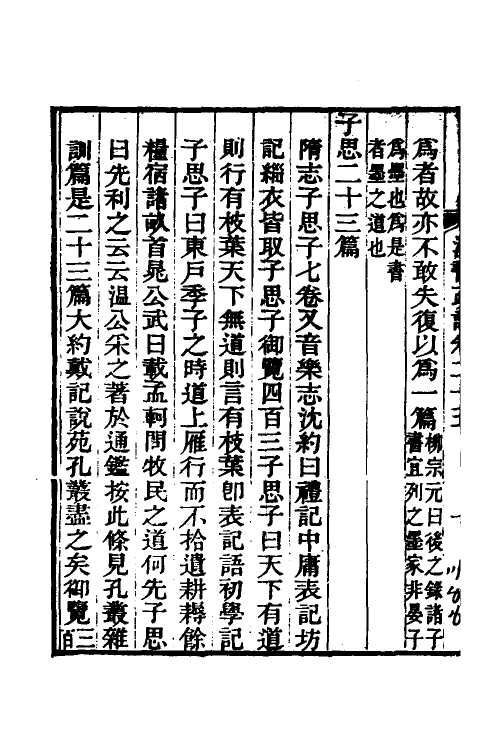 爲者故亦不敢失復以爲一篇柳宗元曰後之錄諸子
書宜列之墨家非晏子
爲墨也爲是書
者墨之道也
子思二十三篇
隋志子思子七卷又音樂志沈約曰禮記中庸表記坊
記緇衣皆取子思子御覽四百三子思子曰天下有道
則行有枝葉天下無道則言有枝葉卽表記語初學記
子思子曰東戸季子之時道上雁行而不拾遺耕耨餘
糧宿諸畝首晁公武曰載孟軻問牧民之道何先子思
曰先利之云云溫公采之著於通鑑按此條見孔叢雜
訓篇是二十三篇大約戴記說苑孔叢盡之矣御覽三
百